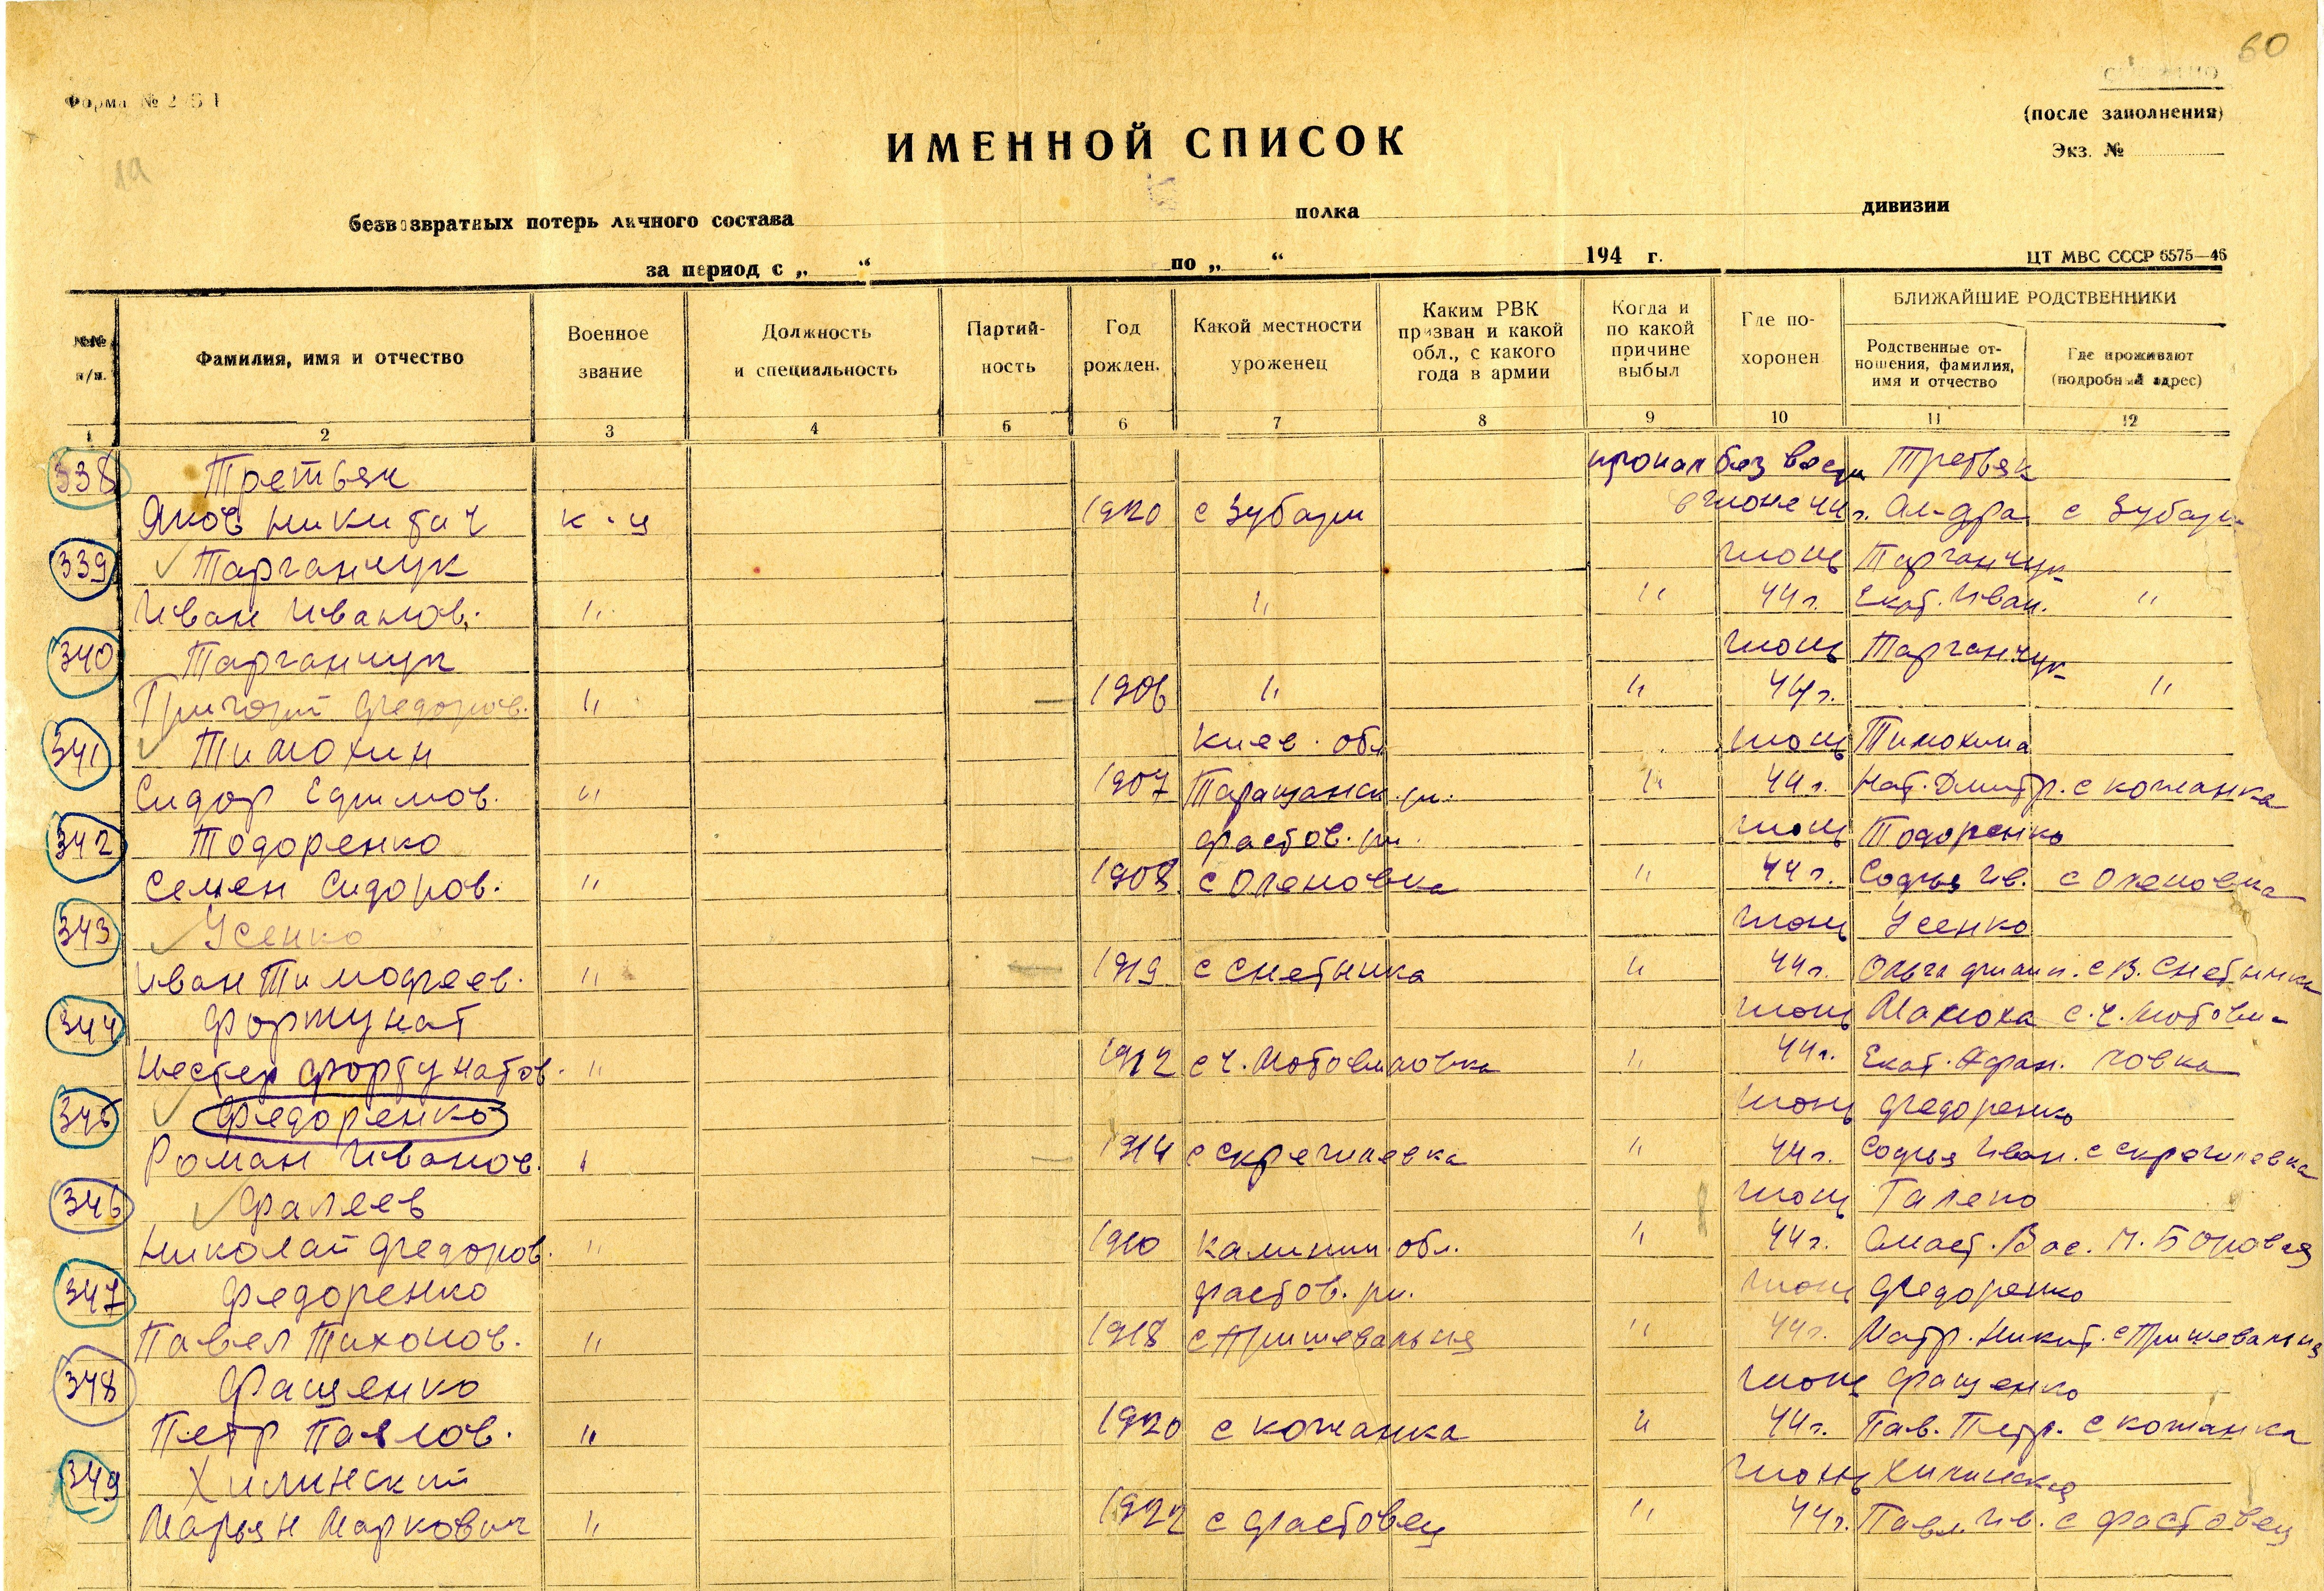 60
Форма № 2/БП
(после заполнения)
Экз. №
1а
ИМЕННОЙ СПИСОК
безвозвратных потерь личного состава полка дивизии
за период с „ “ по „ “ 194 г.
ЦТ МВС СССР 6575—46
№№ п/п. Фамилия, имя и отчество Военное звание Должность и специальность Партийность Год рожден. Какой местности уроженец Каким РВК призван и какой обл., с какого года в армии Когда и по какой причине выбыл Где похоронен БЛИЖАЙШИЕ РОДСТВЕННИКИ Родственные отношения, фамилия, имя и отчество Где проживают (подробный адрес)
1 2 3 4 5 6 7 8 9 10 11 12
338 Третьяк пропал без вести Третьяк
Яков Никитич к-ц 1920 с Зубари в июне 44 г. Ал-дра с Зубари
339 Тарганчук июнь Тарганчук
Иван Иванов. " " " 44 г. Екат. Иван. "
340 Тарганчук июнь Тарганчук
Григорий Федоров. " 1906 " " 44 г. "
341 Тимохин Киев. обл июнь Тимохина
Сидор Ефимов. " 1907 Таращанск. рн. " 44 г. Нат. Дмитр. с Кожанка
342 Тодоренко Фастов. рн. июнь Тодоренко
Семен Сидоров. " 1908 с Оленовка " 44 г. Софья Ив. с Оленовка
343 Усенко июнь Усенко
Иван Тимофеев. " 1919 с Снетынка " 44 г. Ольга Филип. с В. Снетынка
344 Фортунат июнь Манюха с. Ч. Мотови-
Нестер Фортунатов. " 1912 с Ч. Мотовиловка " 44 г. Екат. Афан. ловка
345 Федоренко июнь Федоренко
Роман Иванов. " 1914 с Скрегилевка " 44 г. Софья Иван. с Скрегилевка
346 Фалеев июнь Галепо
Николай Федоров. " 1910 Калинин. обл. " 44 г. Анаст. Вас. М. Боровая
347 Федоренко Фастов. рн. июнь Федоренко
Павел Тихонов. " 1918 с Пришевальня " 44 г. Матр. Никит. с Пришевальня
348 Фащенко июнь Фащенко
Петр Павлов. " 1920 с Кожанка " 44 г. Пав. Петр. с Кожанка
349 Хилинский июнь Хилинская
Марьян Маркович " 1922 с Фастовец " 44 г. Павл. Ив. с Фастовец